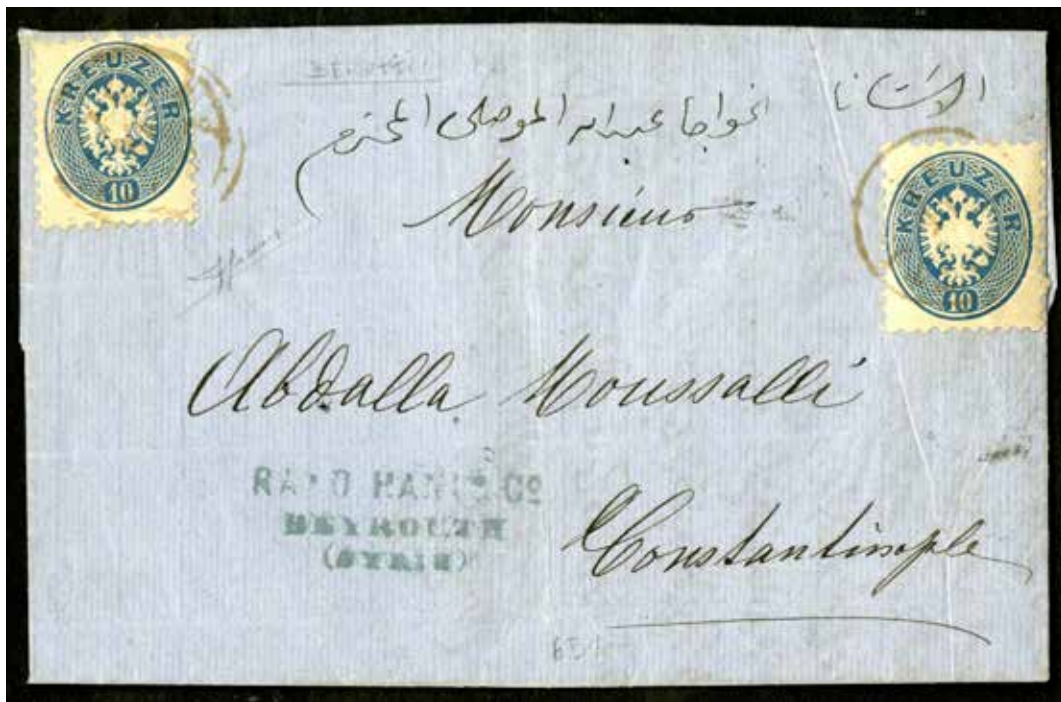 KREUZER
10
الاستانا
الخواجا عبدالله الموصلي المحترم
Monsieur
KREUZER
10
Abdalla Moussalli
HANI & Cº
BEYROUTH
(SYRIE)
Constantinople